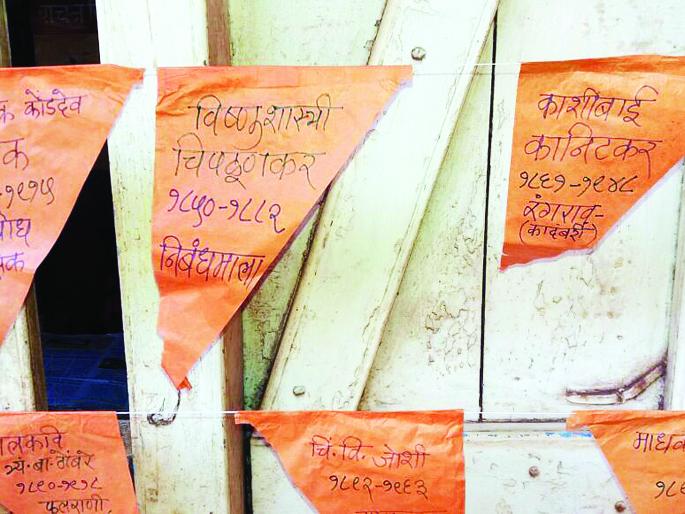 कोंडदेव
विष्णुशास्त्री
चिपळूणकर
१८५०-१८८२
निबंधमाला
काशीबाई
कानिटकर
१८६१-१९४८
रंगराव-
(कादंबरी)
त्र्यं. बा. ठोंबरे
१८९०-१९१८
फुलराणी
चिं. वि. जोशी
१८९२-१९६३